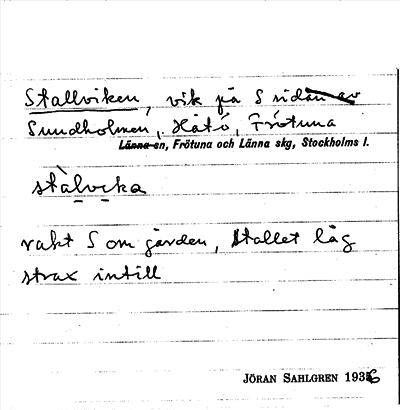 Stallviken, vik på S sidan av
Sundholmen, Håtö, Frötuna
Länna sn, Frötuna och Länna skg, Stockholms l.
stàlvika
rakt S om gården, stallet låg
strax intill
JÖRAN SAHLGREN 1936